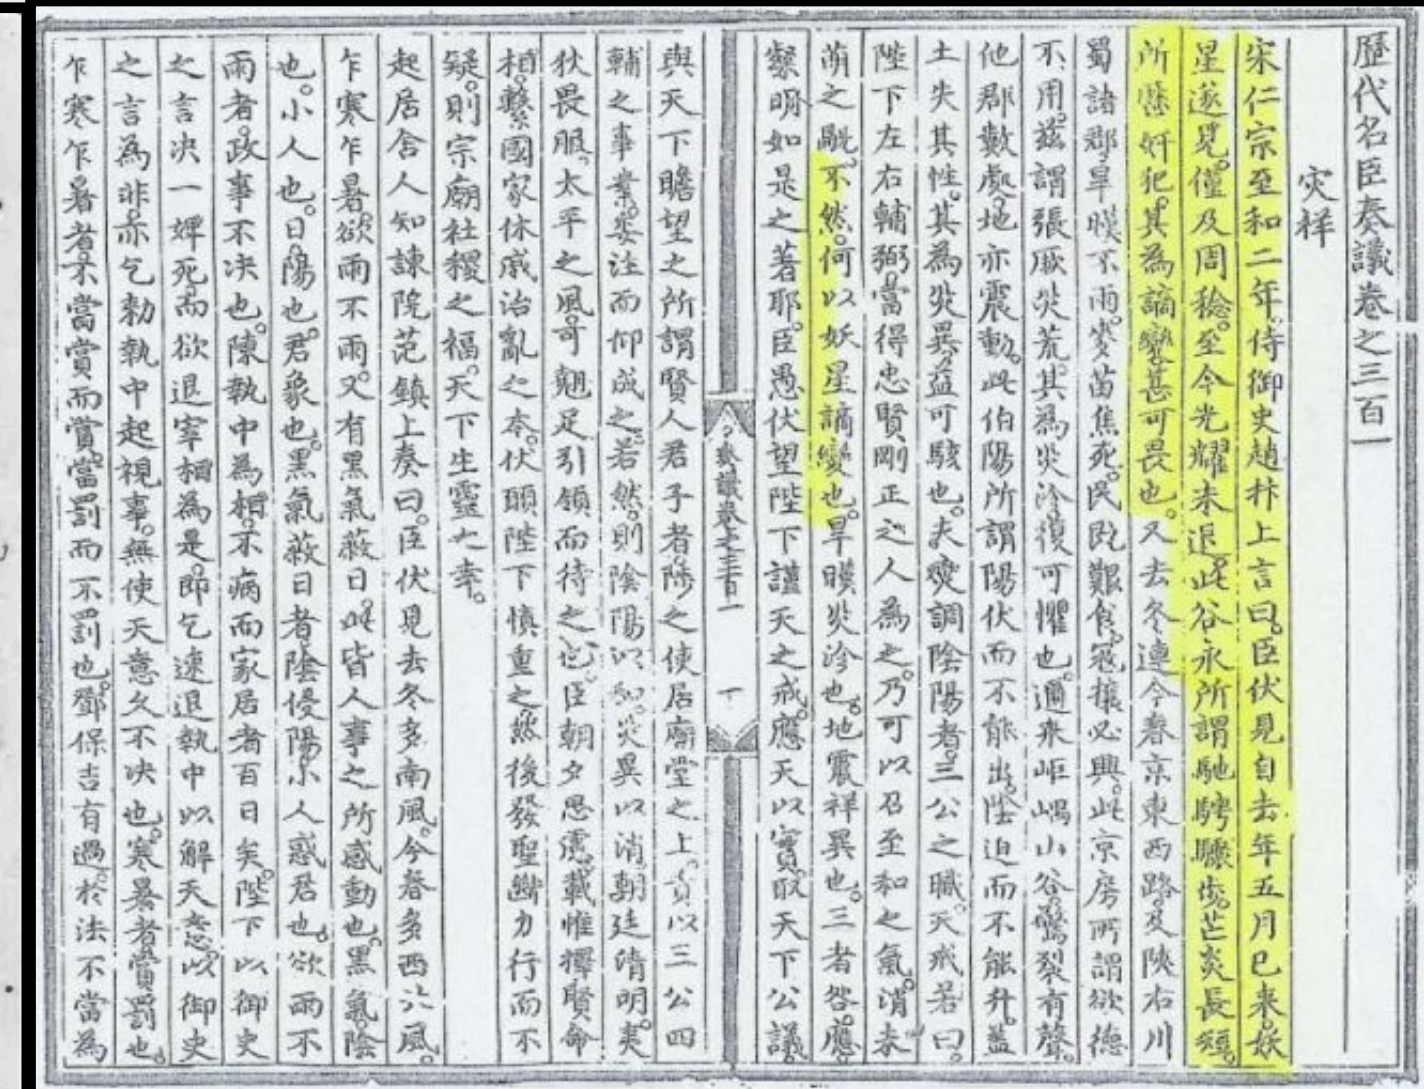 歷代名臣奏議卷之三百一
灾祥
宋仁宗至和二年。侍御史趙抃上言曰。臣伏見自去年五月已来。妖
星遂見。僅及周稔。至今光耀未退。此谷永所謂馳騁驟步。芒炎長短。
所歷奸犯。其為謫變甚可畏也。又去冬連今春京東西路。及陝右川
蜀諸郡旱暵不雨。麥苗焦死。民既艱食。寇攘必興。此京房所謂欲德
不用。茲謂張厥災荒。其為災沴復可懼也。邇來岠嵎山谷。驚裂有聲。
他郡數處。地亦震動。此伯陽所謂陽伏而不能出。陰迫而不能升。蓋
土失其性。其為災異益可駭也。夫燮調陰陽者。三公之職。天戒若曰。
陛下左右輔弼。當得忠賢剛正之人為之。乃可以召至和之氣。消未
萌之。不然。何以妖星謫變也。旱暵災沴也。地震祥異也。三者咎應
明如是之著耶。臣愚伏望陛下謹天之戒。應天以實。取天下公議
奏議卷之三百一
與天下瞻望之所謂賢人君子者。陟之使居廟堂之上。責以三公四
輔之事業。委注而仰成之。若然。則陰陽以和。災異以消。朝廷清明。夷
狄畏服。太平之風。可翹足引領而待之也。臣朝夕思慮。載惟擇賢命
相。繫國家休戚治亂之本。伏願陛下慎重之。然後發聖斷力行而不
疑。則宗廟社稷之福。天下生靈之幸。
起居舍人知諫院范鎮上奏曰。臣伏見去冬多南風。今春多西北風。
乍寒乍暑。欲雨不雨。又有黑氣蔽日。此皆人事之所感動也。黑氣。陰
也。小人也。日。陽也。君象也。黑氣蔽日者。陰侵陽。小人惑君也。欲雨不
雨者。政事不决也。陳執中為相。不病而家居者百日矣。陛下以御史
之言决一婢死。而欲退宰相為是。即乞速退執中以解天意。以御史
之言為非。亦乞勑執中起視事。無使天意久不决也。寒暑者。賞罰也。
乍寒乍暑者。不當賞而賞。當罰而不罰也。鄧保吉有過。於法不當為